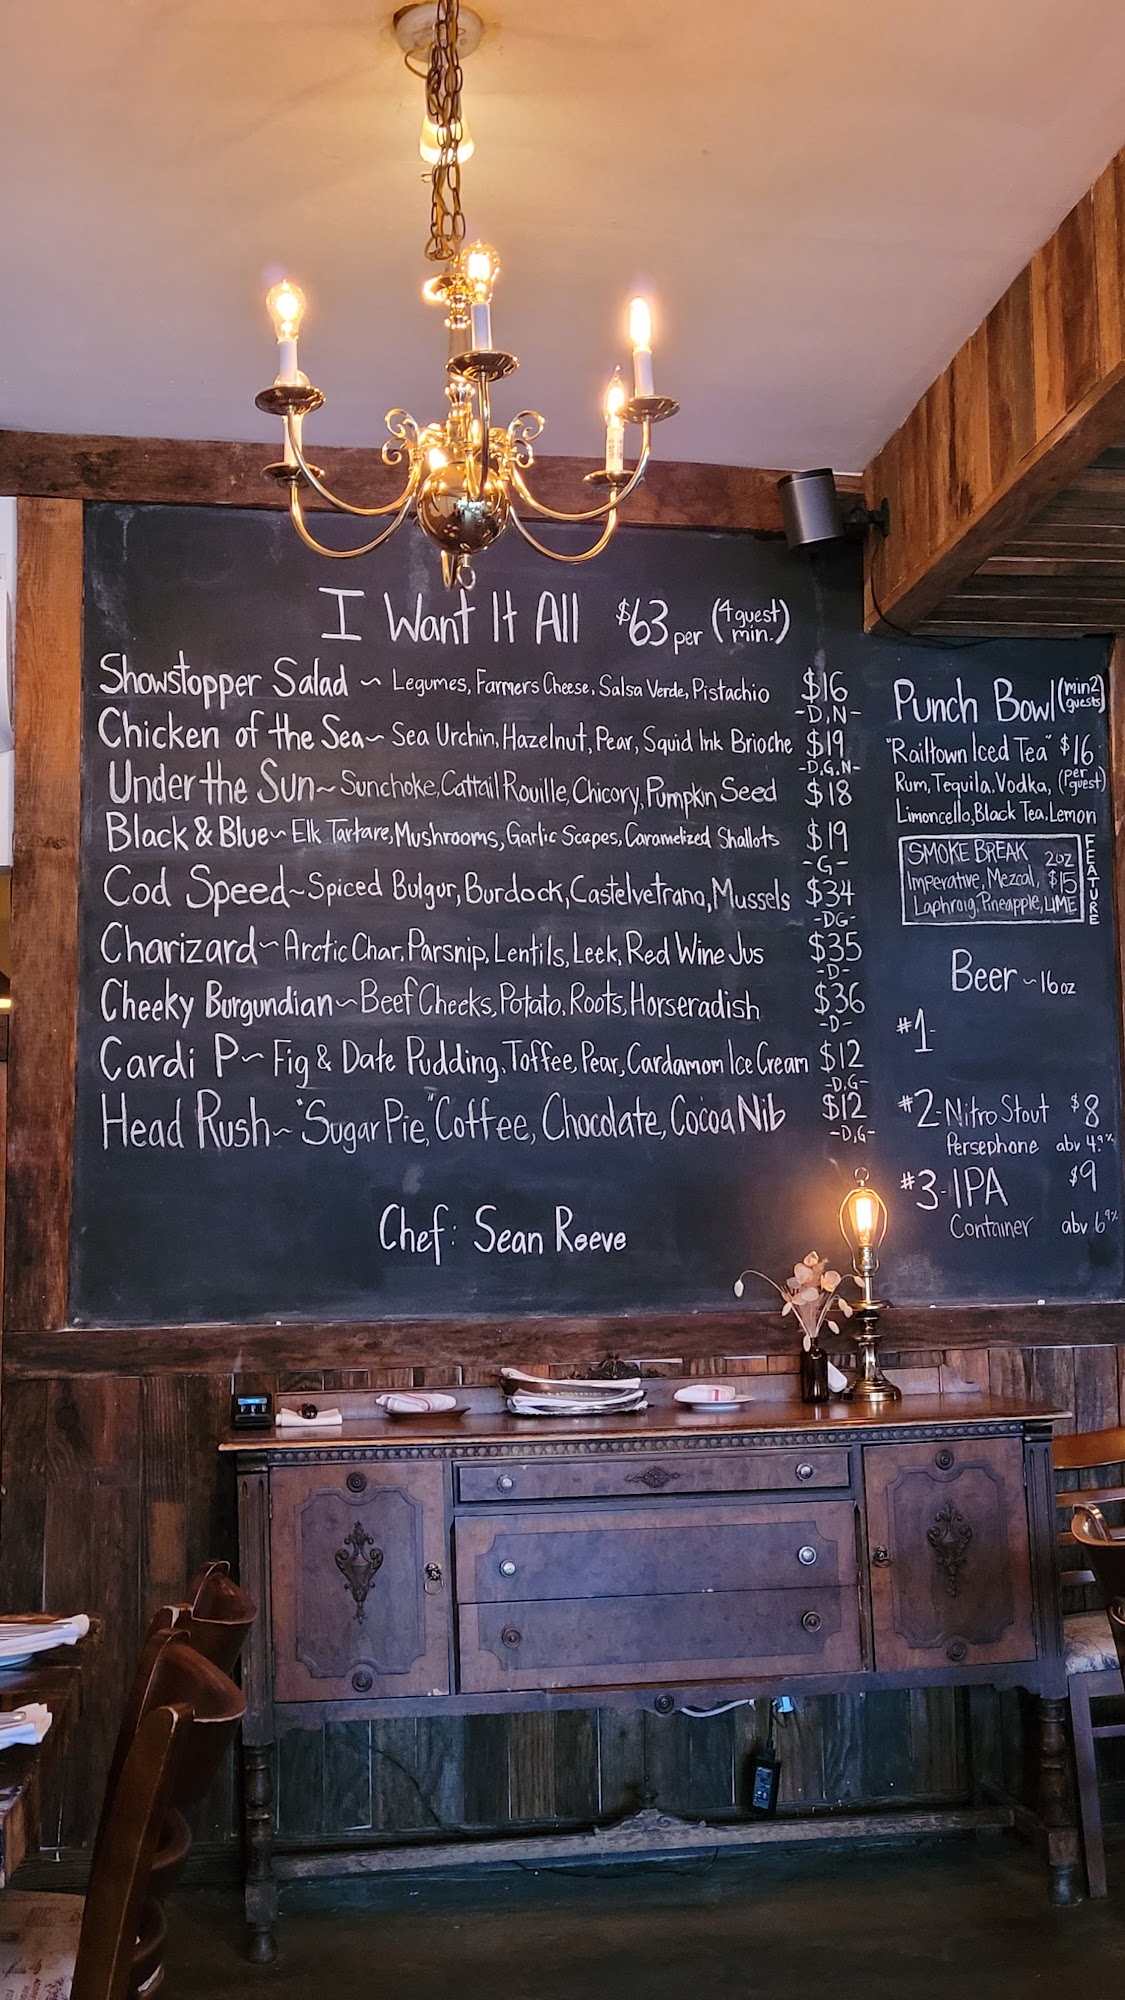 I Want It All $63 per (4 guest min.)
Showstopper Salad ~ Legumes, Farmers Cheese, Salsa Verde, Pistachio $16
-D,N-
Chicken of the Sea ~ Sea Urchin, Hazelnut, Pear, Squid Ink Brioche $19
-D,G,N-
Under the Sun ~ Sunchoke, Cattail Rouille, Chicory, Pumpkin Seed $18
Black & Blue ~ Elk Tartare, Mushrooms, Garlic Scapes, Caramelized Shallots $19
-G-
Cod Speed ~ Spiced Bulgur, Burdock, Castelvetrano, Mussels $34
-DG-
Charizard ~ Arctic Char, Parsnip, Lentils, Leek, Red Wine Jus $35
-D-
Cheeky Burgundian ~ Beef Cheeks, Potato, Roots, Horseradish $36
-D-
Cardi P ~ Fig & Date Pudding, Toffee, Pear, Cardamom Ice Cream $12
-D,G-
Head Rush ~ "Sugar Pie," Coffee, Chocolate, Cocoa Nib $12
-D,G-
Chef: Sean Reeve
Punch Bowl (min 2 guests)
"Railtown Iced Tea" $16
Rum, Tequila, Vodka, (per guest)
Limoncello, Black Tea, Lemon
SMOKE BREAK 2oz
Imperative, Mezcal, $15
Laphroig, Pineapple, LIME
FEATURE
Beer ~ 16oz
#1-
#2-Nitro Stout $8
Persephone abv 4.9%
#3-IPA $9
Container abv 6%